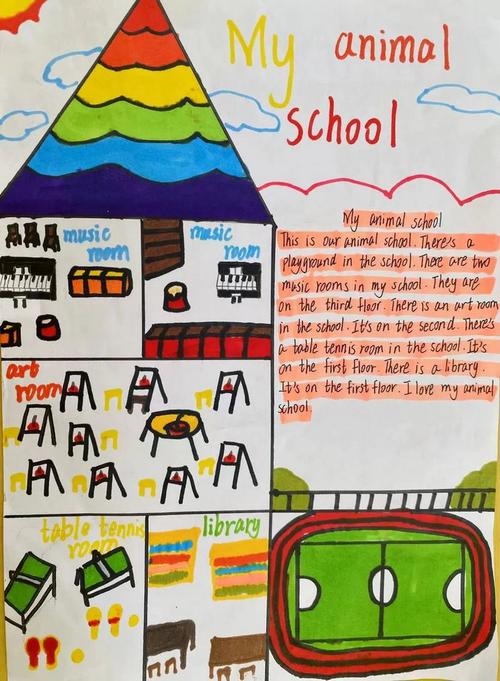 My animal
school
music
room
music
room
art
room
table tennis
room
library
My animal school
This is our animal school. There's a
playground in the school. There are two
music rooms in my school. They are
on the third floor. There is an art room
in the school. It's on the second. There's
a table tennis room in the school. It's
on the first floor. There is a library.
It's on the first floor. I love my animal
school.